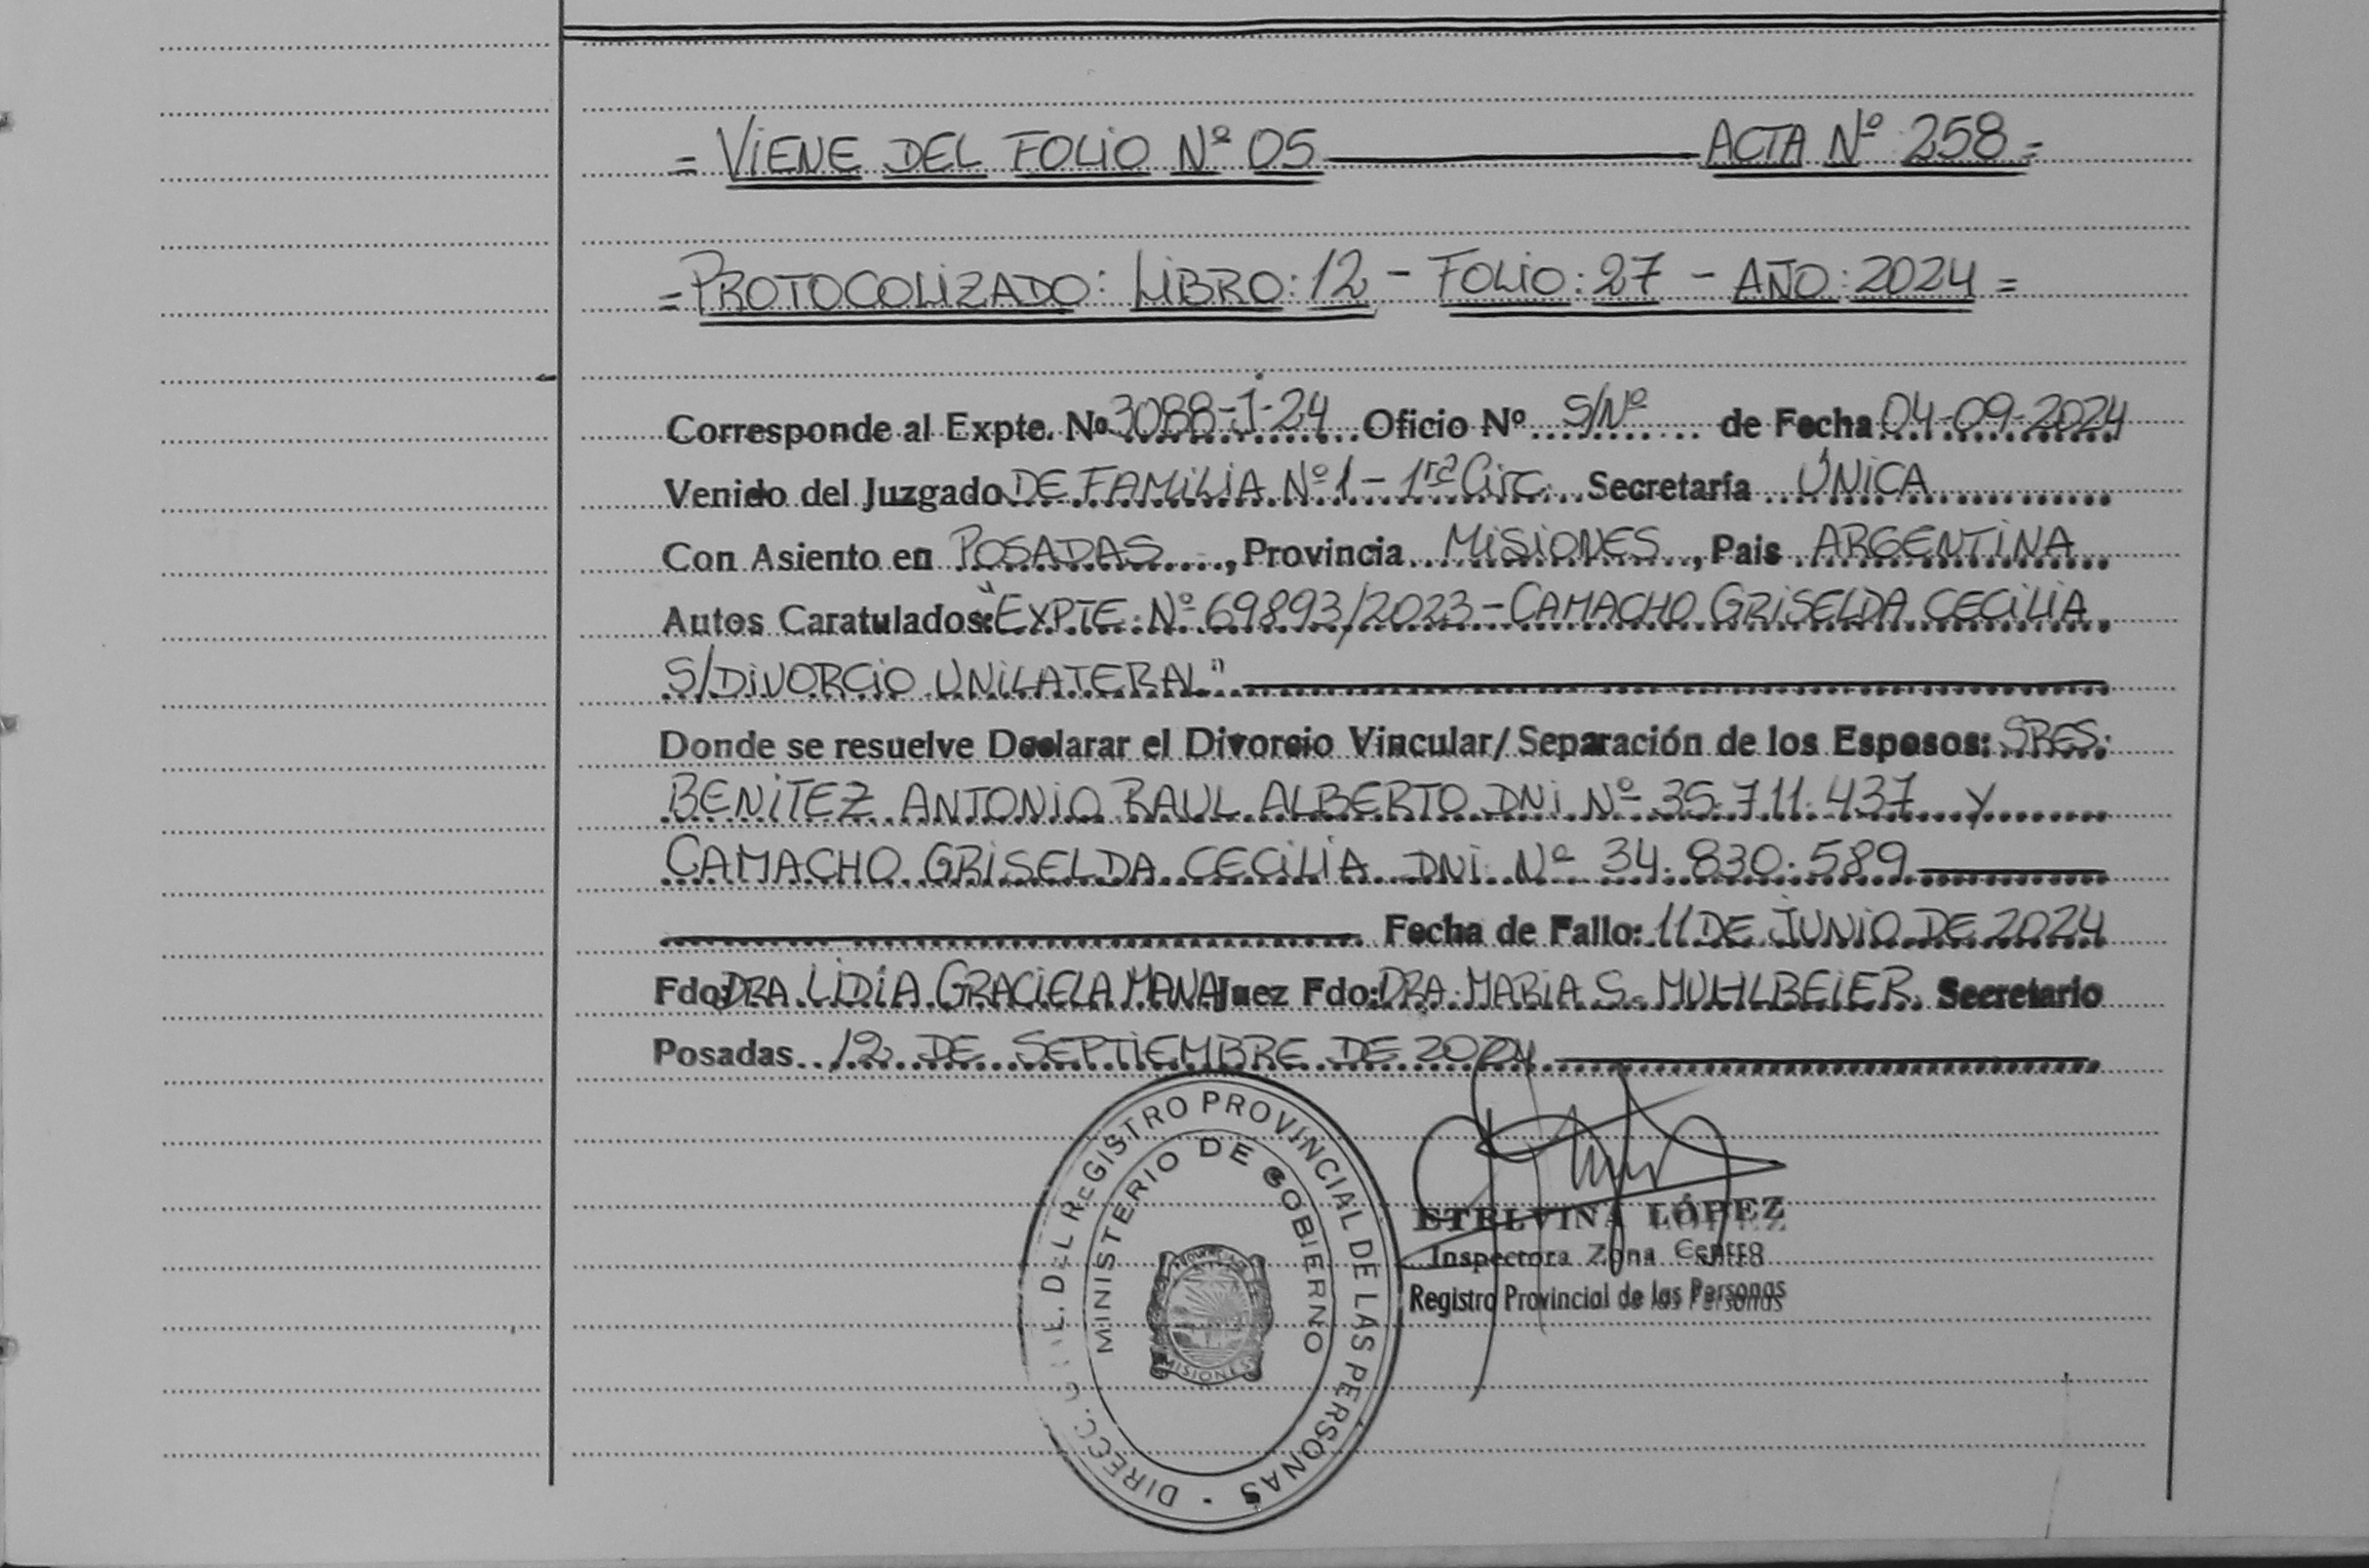 = VIENE DEL FOLIO Nº 05 ACTA Nº 258 =
= PROTOCOLIZADO: LIBRO: 12 - FOLIO: 27 - AÑO: 2024 =
Corresponde al Expte. Nº 3088-J-24 Oficio Nº S/Nº de Fecha 04-09-2024
Venido del Juzgado DE FAMILIA Nº 1 - 1ra Circ. Secretaría ÚNICA
Con Asiento en POSADAS, Provincia MISIONES, Pais ARGENTINA
Autos Caratulados: "EXPTE. Nº 69893/2023 - CAMACHO GRISELDA CECILIA
S/DIVORCIO UNILATERAL"
Donde se resuelve Declarar el Divorcio Vincular/Separación de los Esposos: SRES.
BENITEZ ANTONIO RAUL ALBERTO DNI Nº 35.711.437 Y
CAMACHO GRISELDA CECILIA DNI Nº 34.830.589
Fecha de Fallo: 11 DE JUNIO DE 2024
Fdo: DRA. LIDIA GRACIELA MANA Juez Fdo: DRA. MARIA S. MUHLBEIER Secretario
Posadas 12 DE SEPTIEMBRE DE 2024
DIRECC. DEL REGISTRO PROVINCIAL DE LAS PERSONAS
MINISTERIO DE GOBIERNO
PROVINCIA DE
MISIONES
ETELVINA LÓPEZ
Inspectora Zona Centro
Registro Provincial de las Personas